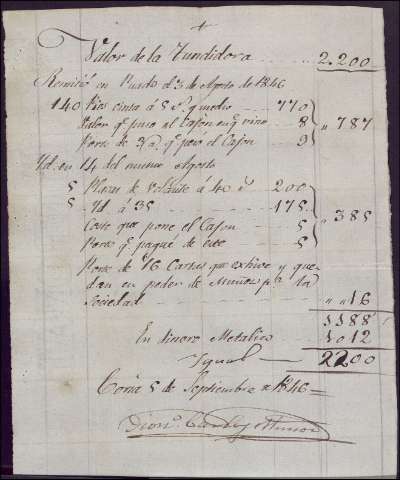 Valor de la Tundidora 2.200
Remitió en Ruedo el 3 de Agosto de 1846
140 Pies cinta á 5 r.s y medio 770
Valor q.e puso al Cajon en q.e vino 8 " 787
Porte de 9 a. q.e pesó el Cajon 9
Yd. en 14 del mismo Agosto
5 Plazas de á 40 r.s 200
5 Yd. á 35 175 " 385
Coste que pone el Cajon 5
Porte q.e pagué de éste 5
Porte de 16 Cartas que exhive y que-
dan en poder de Muñoz p.a la
Sociedad " " 16
1188
En dinero Metalico 1012
Ygual 2200
Coria 5 de Septiembre de 1846